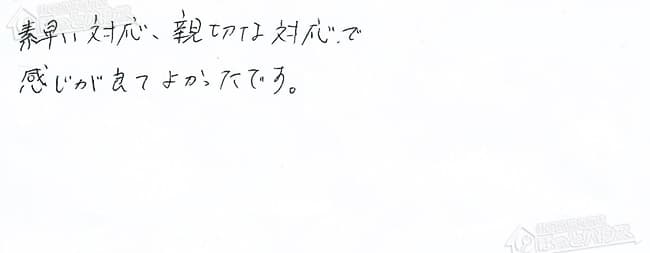 素早い対応、親切な対応で
感じが良てよかったです。